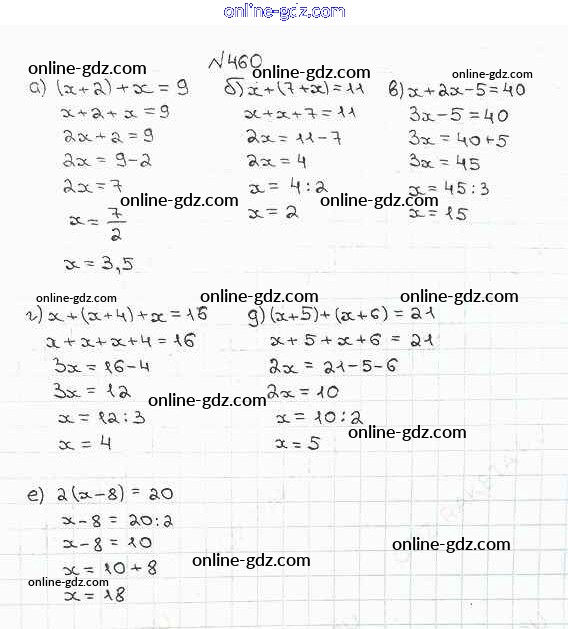 online-gdz.com
№460
online-gdz.com online-gdz.com online-gdz.com
а) (x+2)+x=9
x+2+x=9
2x+2=9
2x=9-2
2x=7
x=7/2
x=3,5
б) x+(7+x)=11
x+x+7=11
2x=11-7
2x=4
x=4:2
x=2
в) x+2x-5=40
3x-5=40
3x=40+5
3x=45
x=45:3
x=15
online-gdz.com online-gdz.com
online-gdz.com online-gdz.com
г) x+(x+4)+x=16
x+x+x+4=16
3x=16-4
3x=12
x=12:3
x=4
д) (x+5)+(x+6)=21
x+5+x+6=21
2x=21-5-6
2x=10
x=10:2
x=5
online-gdz.com
online-gdz.com
е) 2(x-8)=20
x-8=20:2
x-8=10
x=10+8
x=18
online-gdz.com online-gdz.com
online-gdz.com